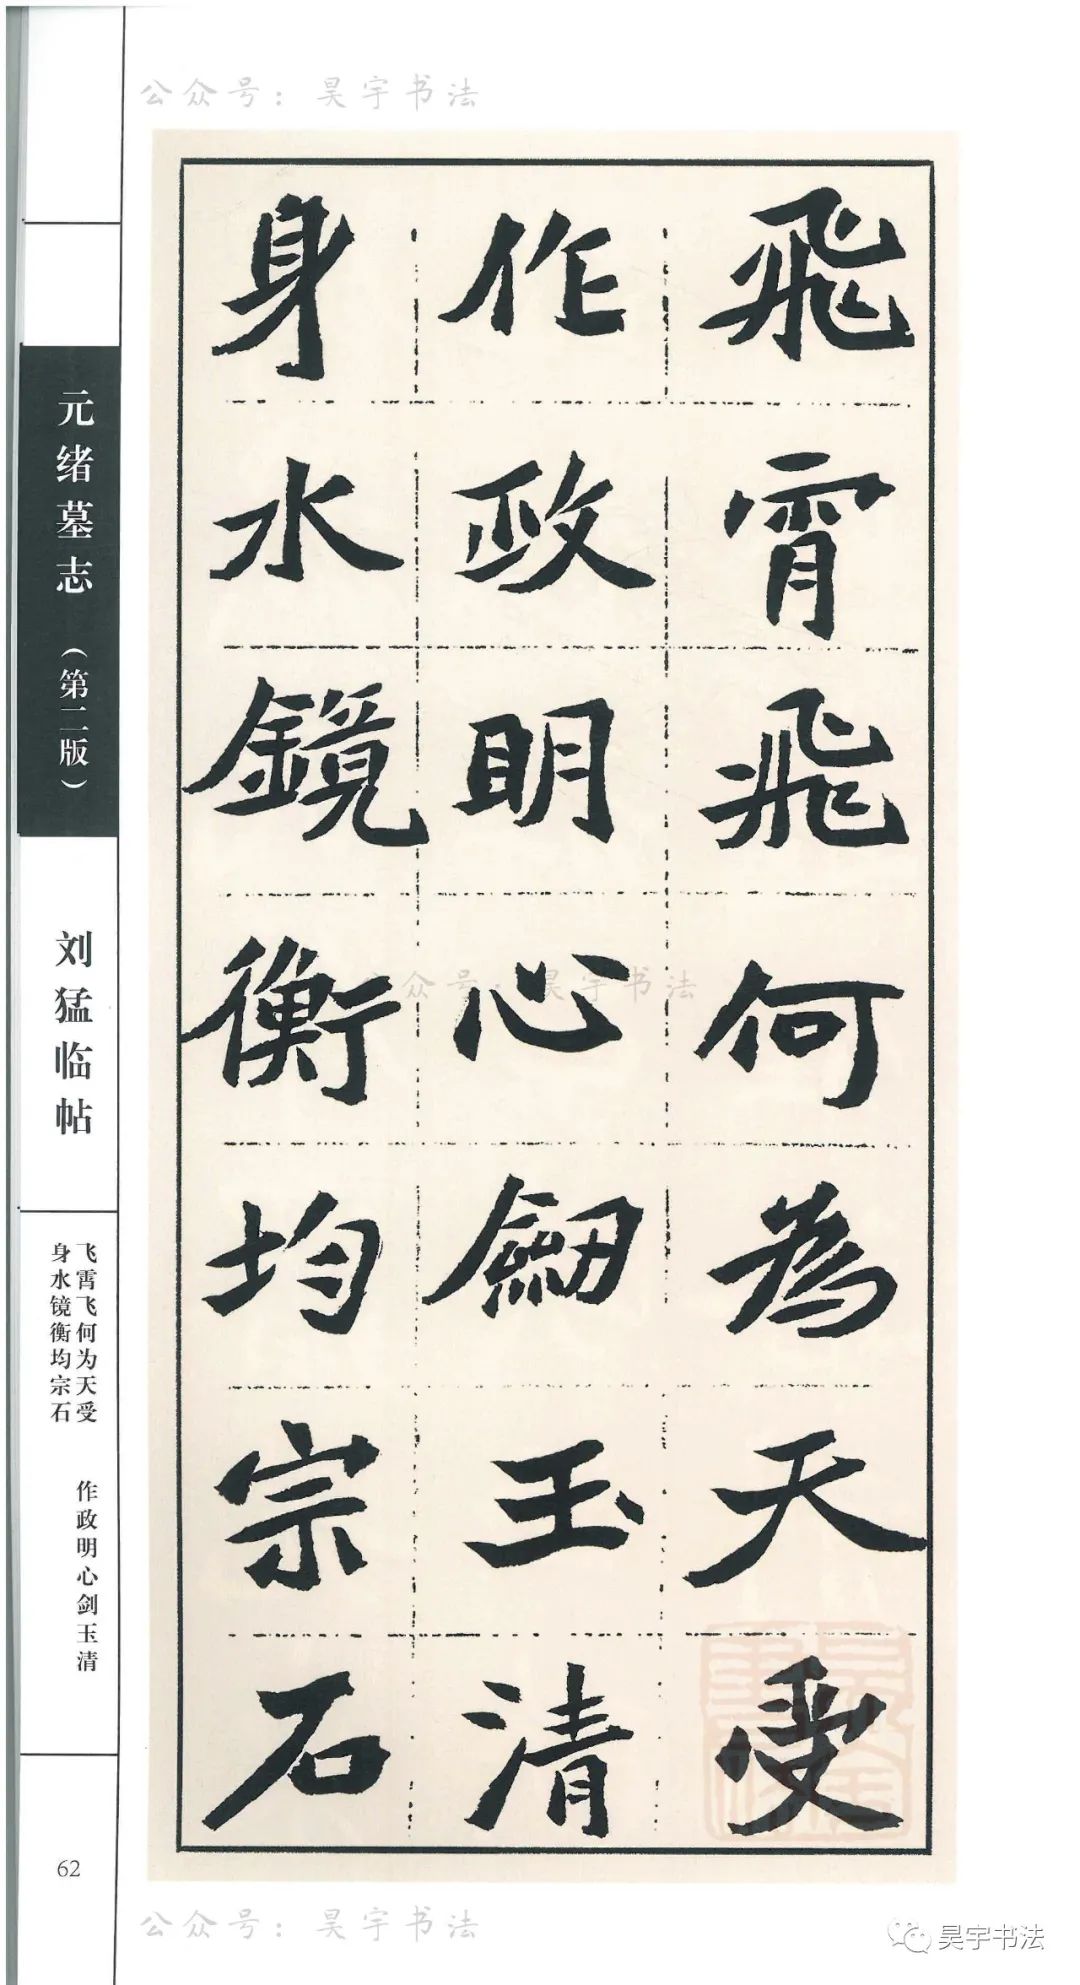 公众号：昊宇书法
飛霄飛何為天受
作政明心劒玉清
身水鏡衡均宗石
元绪墓志（第二版）
刘猛临帖
飞霄飞何为天受
身水镜衡均宗石
作政明心剑玉清
62
公众号：昊宇书法
公众号：昊宇书法
昊宇书法